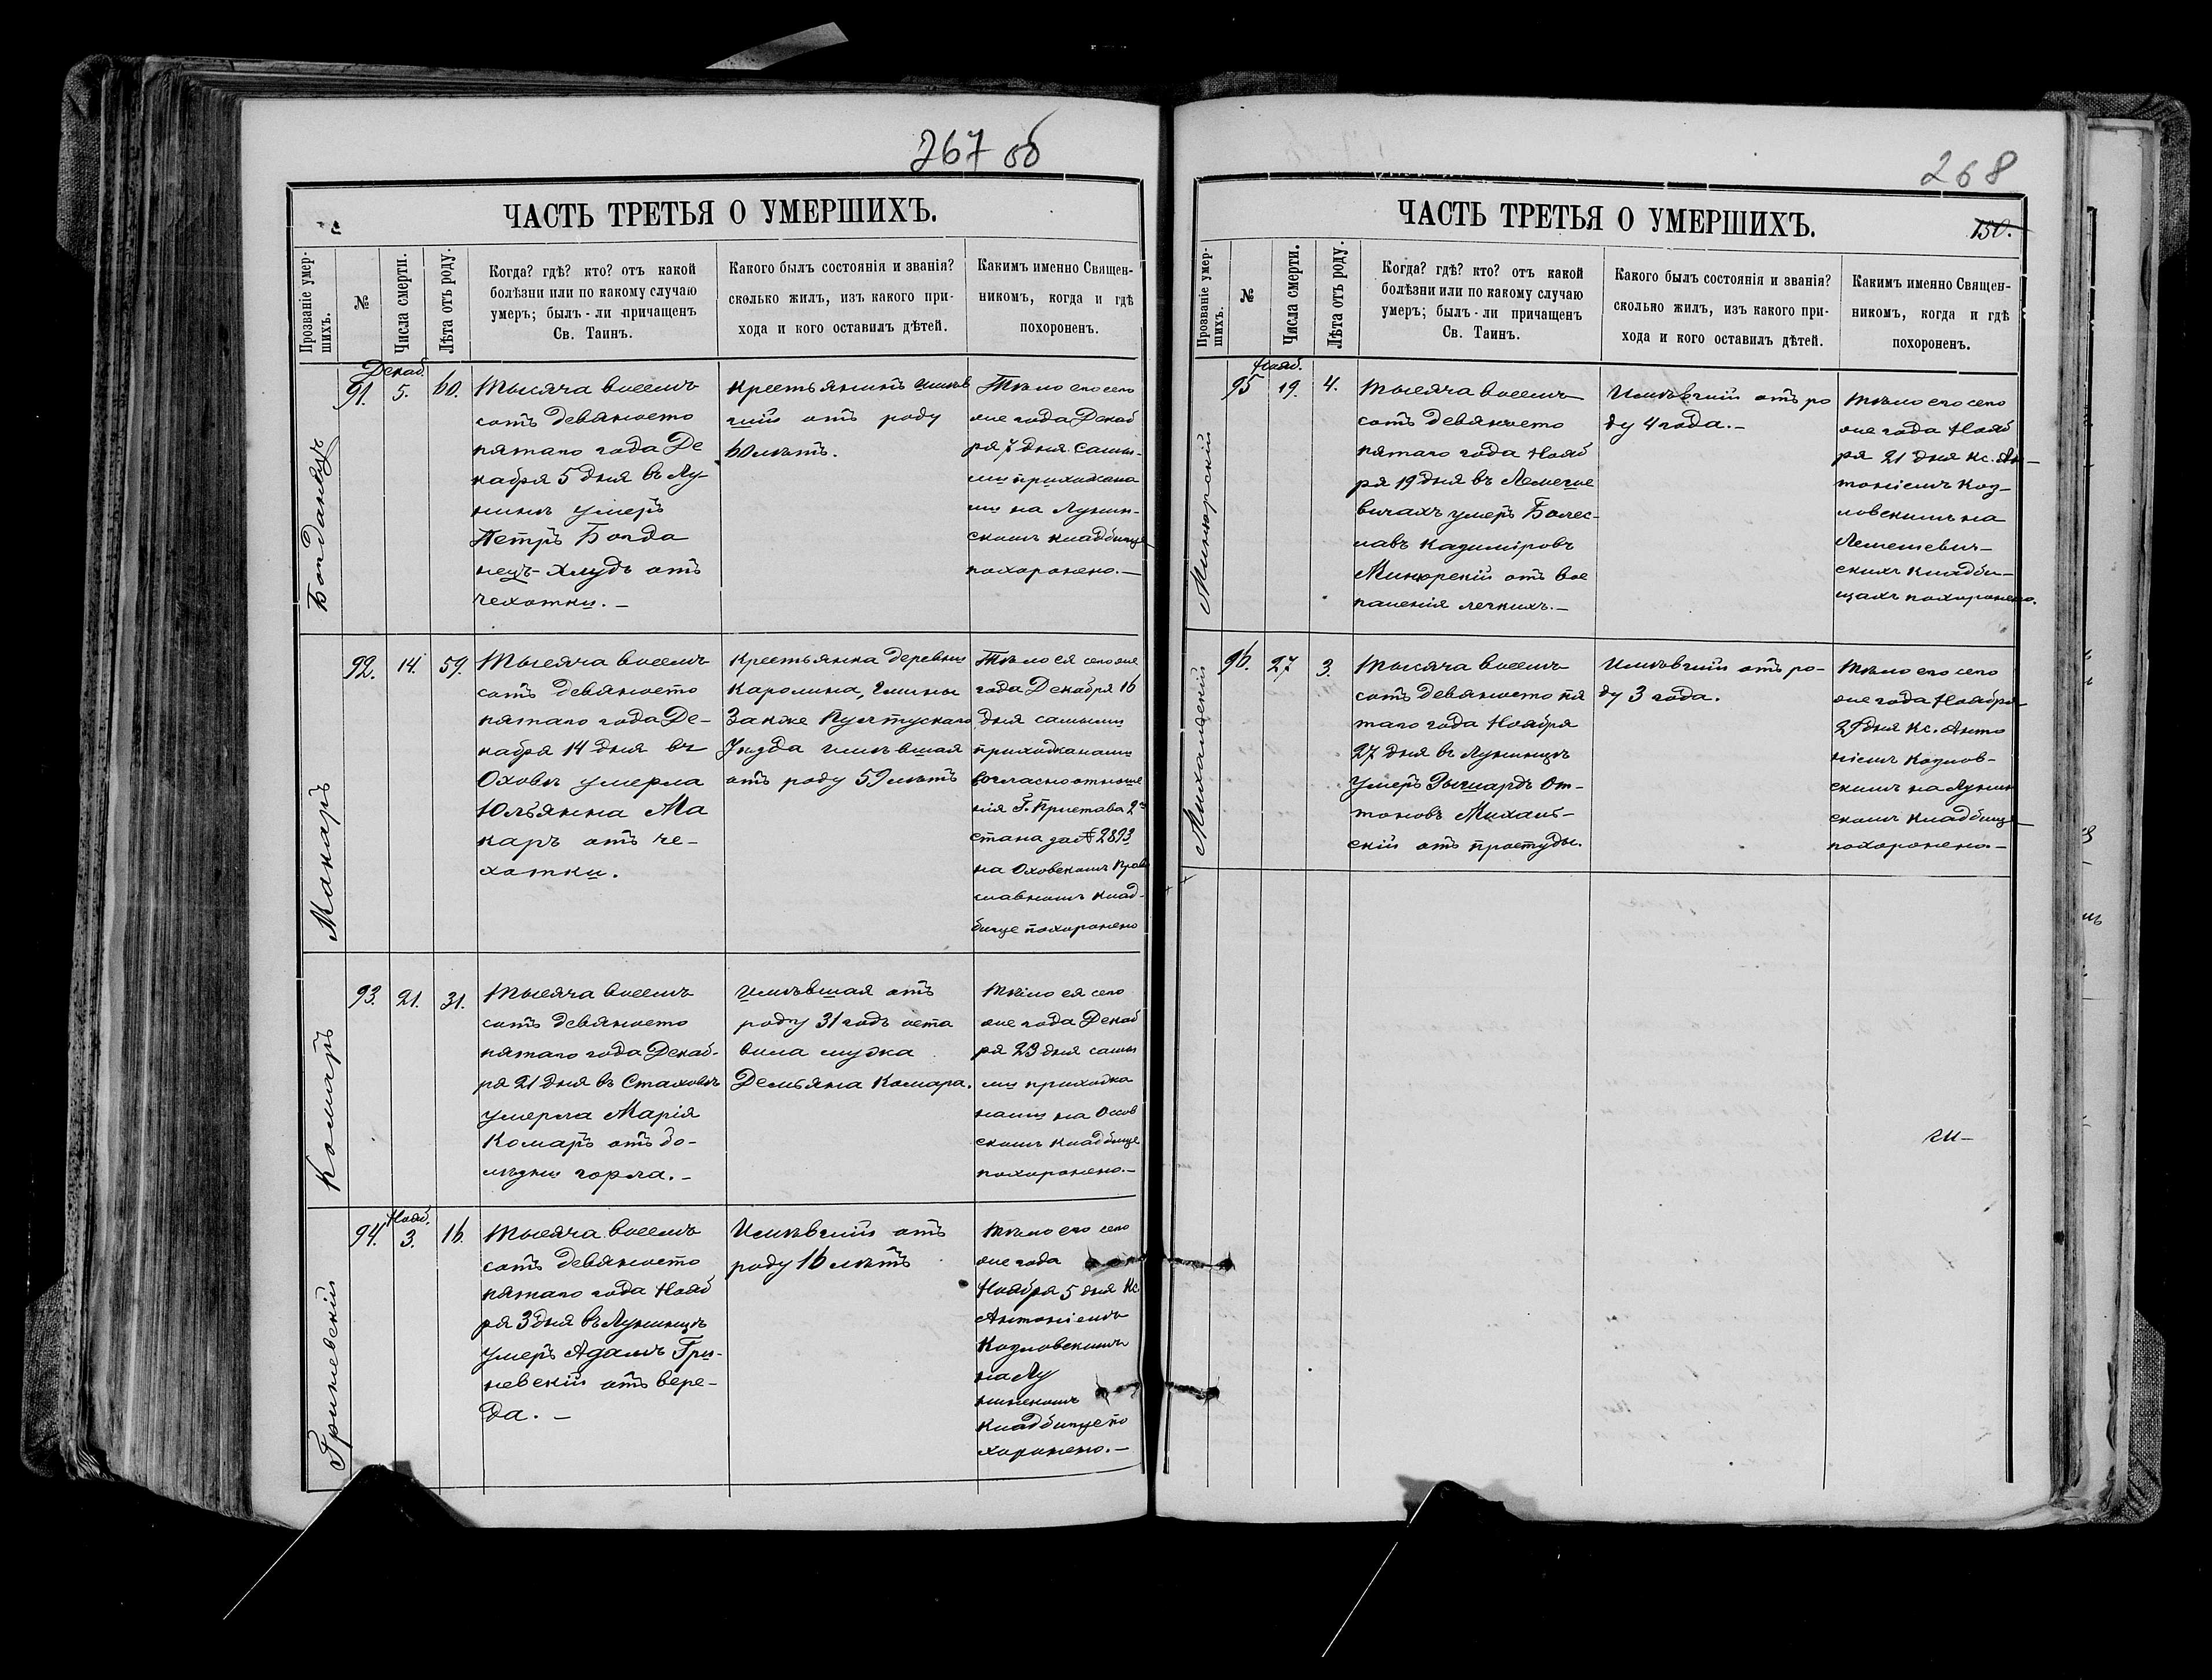 267 об
ЧАСТЬ ТРЕТЬЯ О УМЕРШИХЪ.
Прозваніе умер-
шихъ.
№
Числа смерти.
Лѣта отъ роду.
Когда? гдѣ? кто? отъ какой
болѣзни или по какому случаю
умеръ; былъ-ли причащенъ
Св. Таинъ.
Какого былъ состоянія и званія?
сколько жилъ, изъ какого при-
хода и кого оставилъ дѣтей.
Какимъ именно Священ-
никомъ, когда и гдѣ
похороненъ.
Богданецъ
Декаб.
91.
5.
60.
Тысяча восемь
сотъ девяносто
пятаго года Де
кабря 5 дня въ Лу-
нинѣ умеръ
Петръ Богда
нецъ-Хлудъ отъ
чехотки. –
Крестьянинъ имѣв
шій отъ роду
60 лѣтъ.
Тѣло его сего
же года Декаб
ря 7 дня самы-
ми прихожана
ми на Лунин-
скомъ кладбище
похоронено. –
Макаръ
92.
14.
59.
Тысяча восемь
сотъ девяносто
пятаго года Де-
кабря 14 дня въ
Оховѣ умерла
Юльянна Ма
каръ отъ че-
хотки.
Крестьянка деревни
Каролина, Гмины
Закже Пултускаго
Уѣзда имѣвшая
отъ роду 59 лѣтъ
Тѣло ея сего же
года Декабря 16
дня самыми
прихожанами
согласно отноше
нія Г. Пристава 2го
стана за № 2893
на Оховскомъ Право
славномъ клад-
бище похоронено
Комаръ
93.
21.
31.
Тысяча восемь
сотъ девяносто
пятаго года Декаб-
ря 21 дня въ Стаховѣ
умерла Марія
Комаръ отъ бо-
лѣзни горла. –
Имѣвшая отъ
роду 31 годъ оста
вила мужа
Демьяна Комара.
Тѣло ея сего
же года Декаб
ря 23 дня самы
ми прихожа
нами на Оссов
скомъ кладбище
похоронено. –
Гриневскій
94.
Нояб.
3.
16.
Тысяча восемь
сотъ девяносто
пятаго года Нояб
ря 3 дня въ Лунинцѣ
умеръ Адамъ Гри-
невскій отъ вере-
да. –
Имѣвшій отъ
роду 16 лѣтъ
Тѣло его сего
же года
Ноября 5 дня Кс
Антоніемъ
Козловскимъ
на Лу
нинскомъ
кладбище по
хоронено. –
268
ЧАСТЬ ТРЕТЬЯ О УМЕРШИХЪ.
150.
Прозваніе умер-
шихъ.
№
Числа смерти.
Лѣта отъ роду.
Когда? гдѣ? кто? отъ какой
болѣзни или по какому случаю
умеръ; былъ-ли причащенъ
Св. Таинъ.
Какого былъ состоянія и званія?
сколько жилъ, изъ какого при-
хода и кого оставилъ дѣтей.
Какимъ именно Священ-
никомъ, когда и гдѣ
похороненъ.
Минюрскій
Нояб.
95
19.
4.
Тысяча восемь
сотъ девяносто
пятаго года Нояб
ря 19 дня въ Лемеше
вичахъ умеръ Болес-
лавъ Казиміровъ
Минюрскій отъ вос
паленія легкихъ. –
Имѣвшій отъ ро
ду 4 года. –
Тѣло его сего
же года Нояб
ря 21 дня Кс. Ан-
тоніемъ Коз-
ловскимъ на
Лемешевич-
скихъ кладби-
щахъ похоронено.
Михальскій
96.
27
3.
Тысяча восемь
сотъ девяносто пя
таго года Ноября
27 дня въ Лунинцѣ
умеръ Рышардъ От-
тоновъ Михаль-
скій отъ простуды.
Имѣвшій отъ ро-
ду 3 года.
Тѣло его сего
же года Ноября
29 дня Кс. Анто
ніемъ Козлов-
скимъ на Лунин
скомъ кладбище
похоронено –